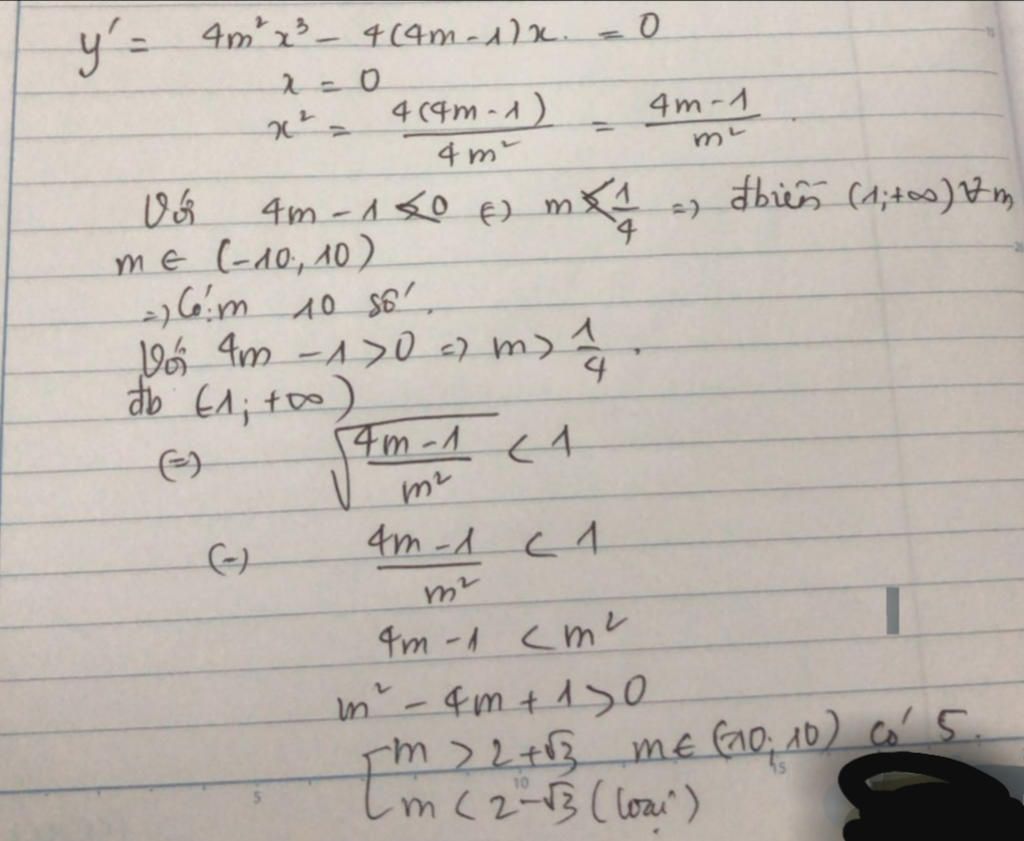 y' = 4m²x³ - 4(4m-1)x. = 0
x = 0
x² = 4(4m-1)/4m² = 4m-1/m².
Với 4m-1 ≤ 0 (=) m ≤ 1/4 => đbiến (1;+∞) ∀m,
m ∈ (-10,10)
=> Có: m 10 số.
Với 4m-1 > 0 => m > 1/4.
đb (1; +∞)
(=) √(4m-1/m²) < 1
(-) 4m-1/m² < 1
4m-1 < m²
m² - 4m + 1 > 0
[m > 2+√3 m ∈ (-10; 10) có 5.
[m < 2-√3 (loại)
5 10 15